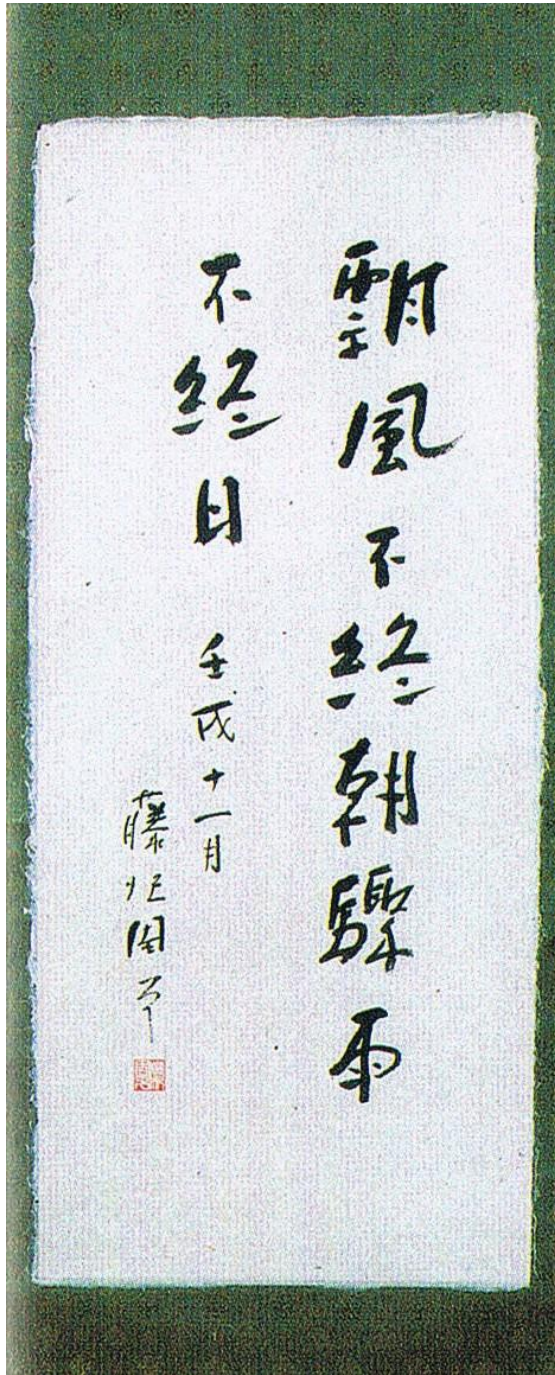 飄風不終朝驟雨
不終日 壬戌十一月
藤沢周平